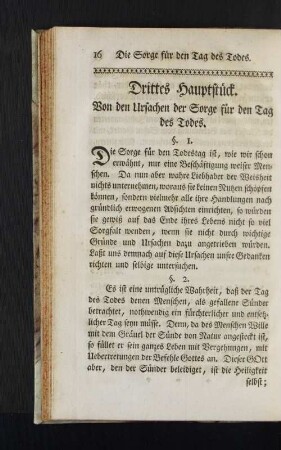 16 Die Sorge für den Tag des Todes.
Drittes Hauptstück.
Von den Ursachen der Sorge für den Tag
des Todes.
§. 1.
Die Sorge für den Todestag ist, wie wir schon
erwähnt, nur eine Beschäftigung weiser Men-
schen. Da nun aber wahre Liebhaber der Weisheit
nichts unternehmen, woraus sie keinen Nutzen schöpfen
können, sondern vielmehr alle ihre Handlungen nach
gründlich erwogenen Absichten einrichten, so würden
sie gewiß auf das Ende ihres Lebens nicht so viel
Sorgfalt wenden, wenn sie nicht durch wichtige
Gründe und Ursachen dazu angetrieben würden.
Laßt uns demnach auf diese Ursachen unsre Gedanken
richten und selbige untersuchen.
§. 2.
Es ist eine untrügliche Wahrheit, daß der Tag
des Todes denen Menschen, als gefallene Sünder
betrachtet, nothwendig ein fürchterlicher und entsetz-
licher Tag seyn müsse. Denn, da des Menschen Wille
mit dem Gräuel der Sünde von Natur angesteckt ist,
so füllet er sein ganzes Leben mit Vergehungen, mit
Uebertretungen der Befehle Gottes an. Dieser GOtt
aber, den der Sünder beleidiget, ist die Heiligkeit
selbst;